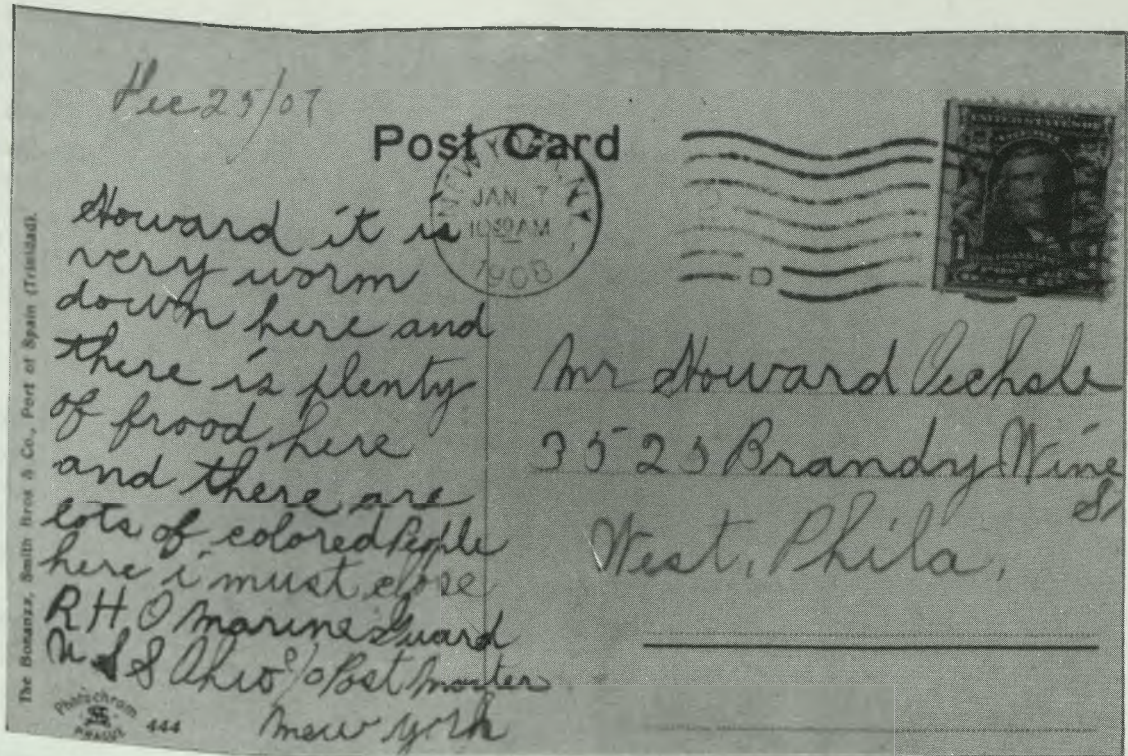 Dec 25/07
Post Card
NEW YORK, N.Y.
JAN 7
10 30 AM
1908
Howard it is
very worm
down here and
there is plenty
of frood here
and there are
lots of colored People
here i must close
R H O Marine Guard
U S S Ohio c/o Post Master
new york
Mr Howard Oechsle
3525 Brandy Wine
St
West, Phila,
The Bonanza, Smith Bros & Co., Port of Spain (Trinidad).
Photochrom
444